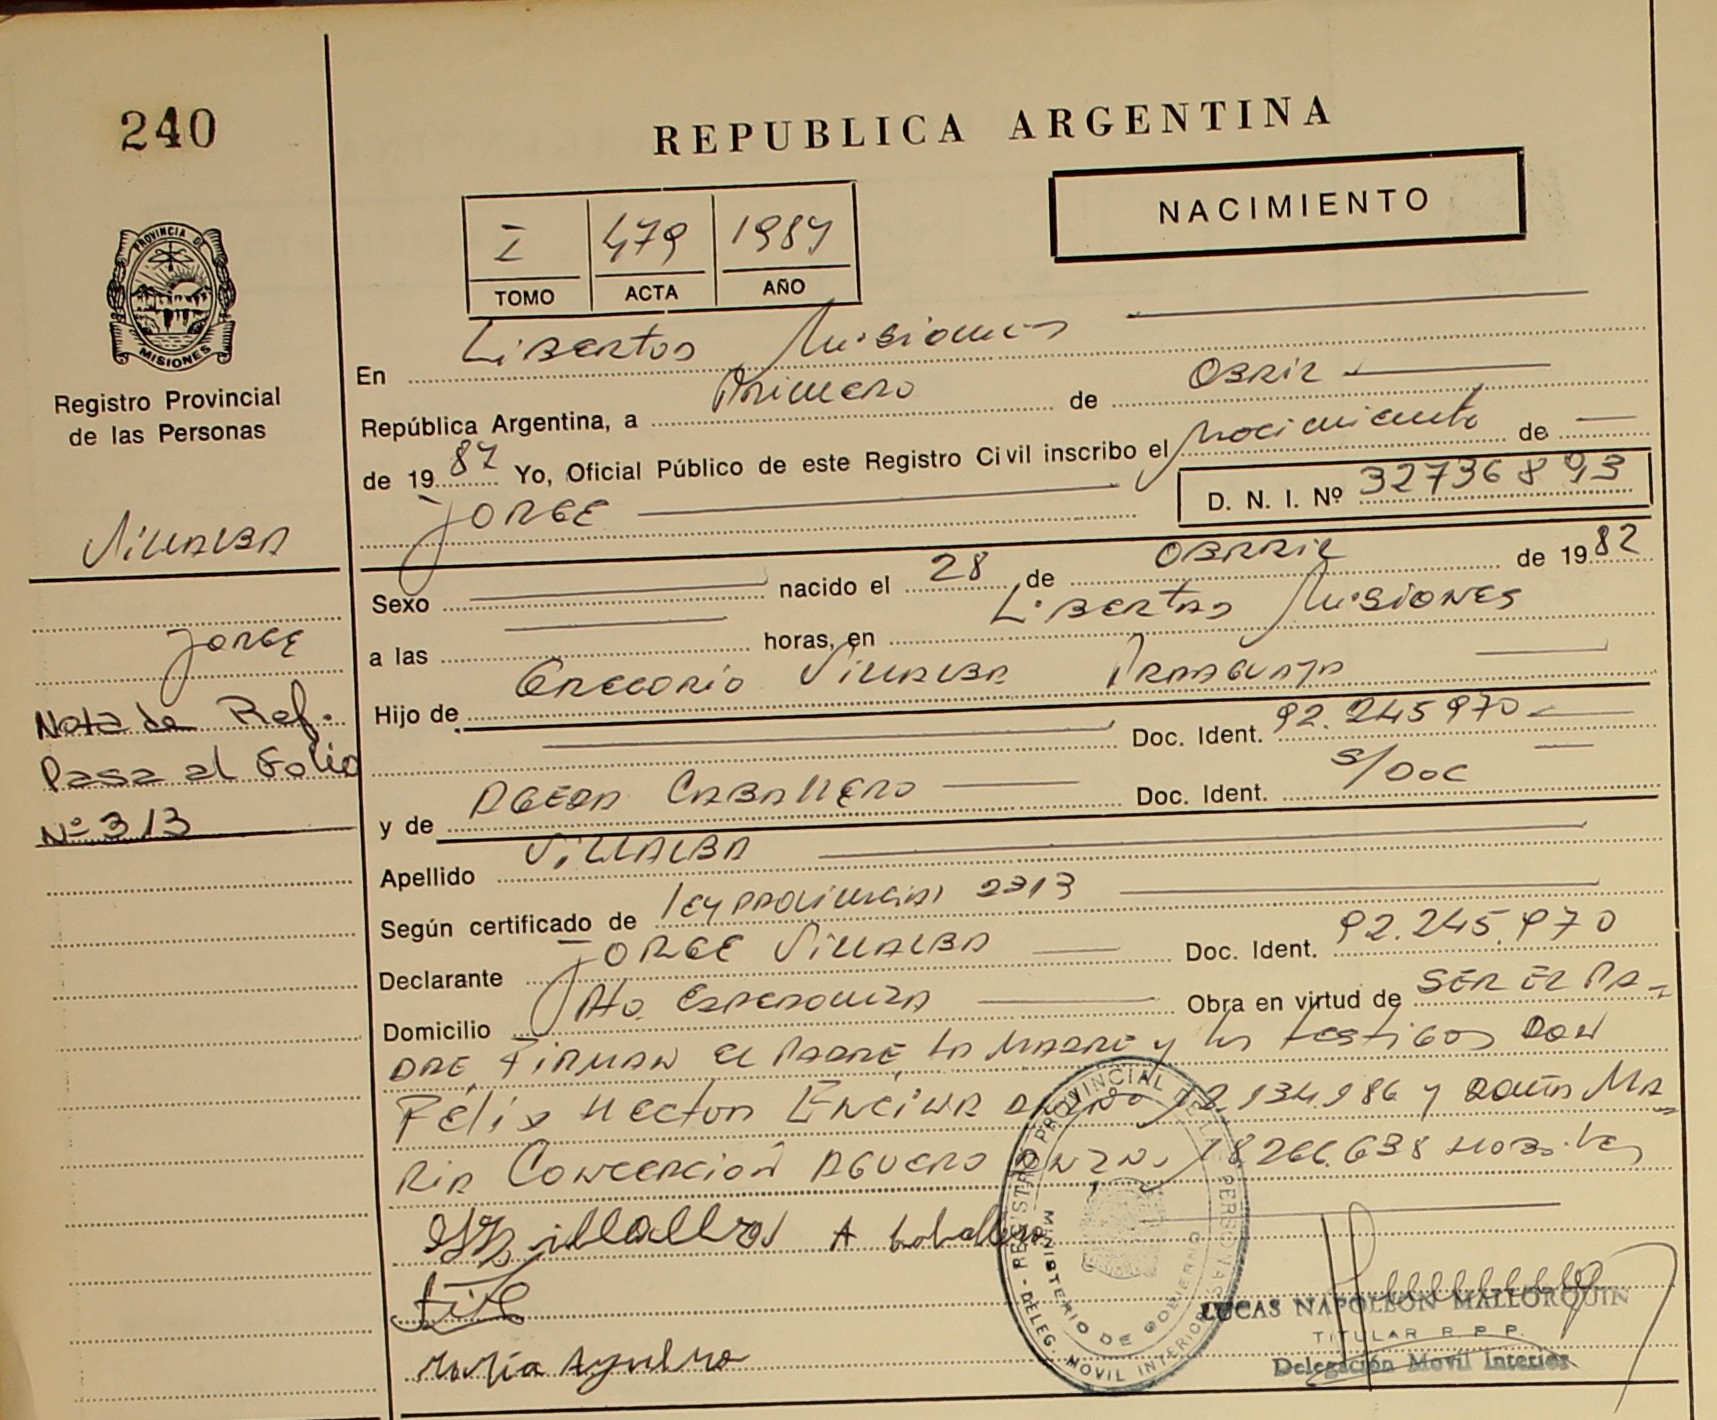 240
REPUBLICA ARGENTINA
NACIMIENTO
I 479 1987
TOMO ACTA AÑO
PROVINCIA DE
MISIONES
Registro Provincial
de las Personas
En Libertad Misiones
República Argentina, a Primero de Abril
de 1987 Yo, Oficial Público de este Registro Civil inscribo el Nacimiento de
JORGE D. N. I. Nº 32736893
VILLALBA
Sexo nacido el 28 de ABRRIL de 1982
a las horas, en LIBERTAD MISIONES
JORGE
Hijo de GREGORIO VILLALBA PRAAGUAYA
Nota de Ref.
Doc. Ident. 92.245970
Pasa al Folio
y de CABALLERO Doc. Ident. S/DOC
Nº 313
Apellido VILLALBA
Según certificado de ley provincial 2313
Declarante JORGE VILLALBA Doc. Ident. 92.245.970
Domicilio Pto. ESPERANZA Obra en virtud de SER EL PA-
DRE, FIRMAN EL PADRE, LA MADRE y los testigos DON
Félix Hector ENCINA 12.134.986 y DOÑA MA
RIA CONCEPCION AGUERO 18266.638 HABILES
A Caballero
María Aguero
REGISTRO PROVINCIAL DE LAS PERSONAS - DELEG. MOVIL INTERIOR
MINISTERIO DE GOBIERNO
LUCAS NAPOLEON MALLORQUIN
TITULAR R.P.P.
Delegación Movil Interior